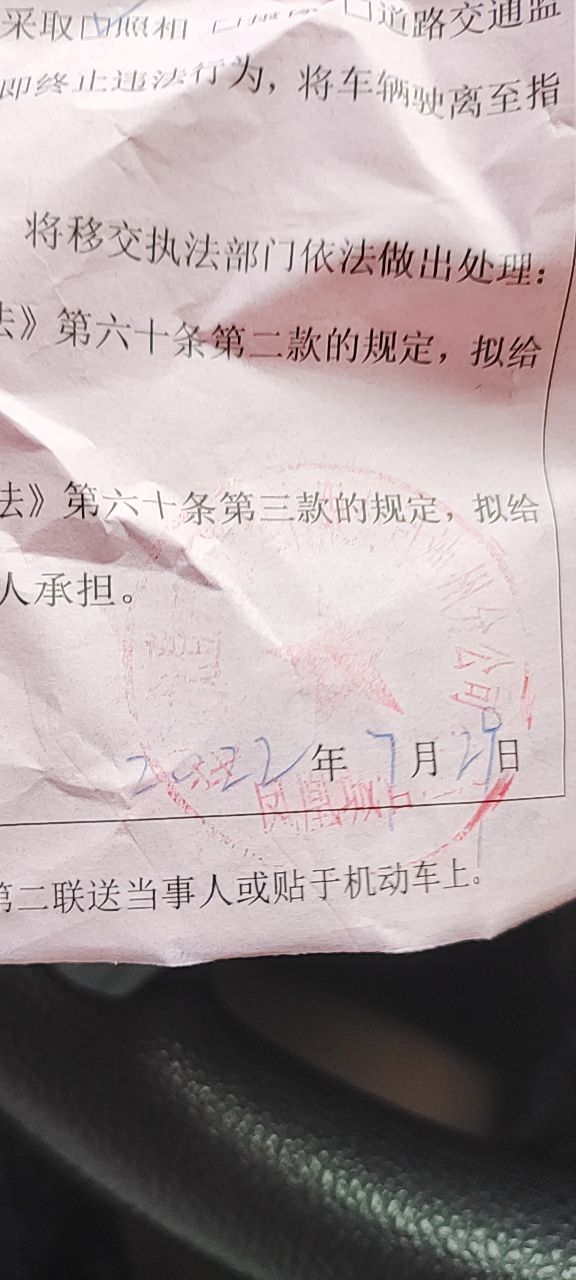 采取☑照相 □摄像 □道路交通监
即终止违法行为，将车辆驶离至指
将移交执法部门依法做出处理：
法》第六十条第二款的规定，拟给
法》第六十条第三款的规定，拟给
人承担。
分公司
2022年7月29日
凤凰城
第二联送当事人或贴于机动车上。